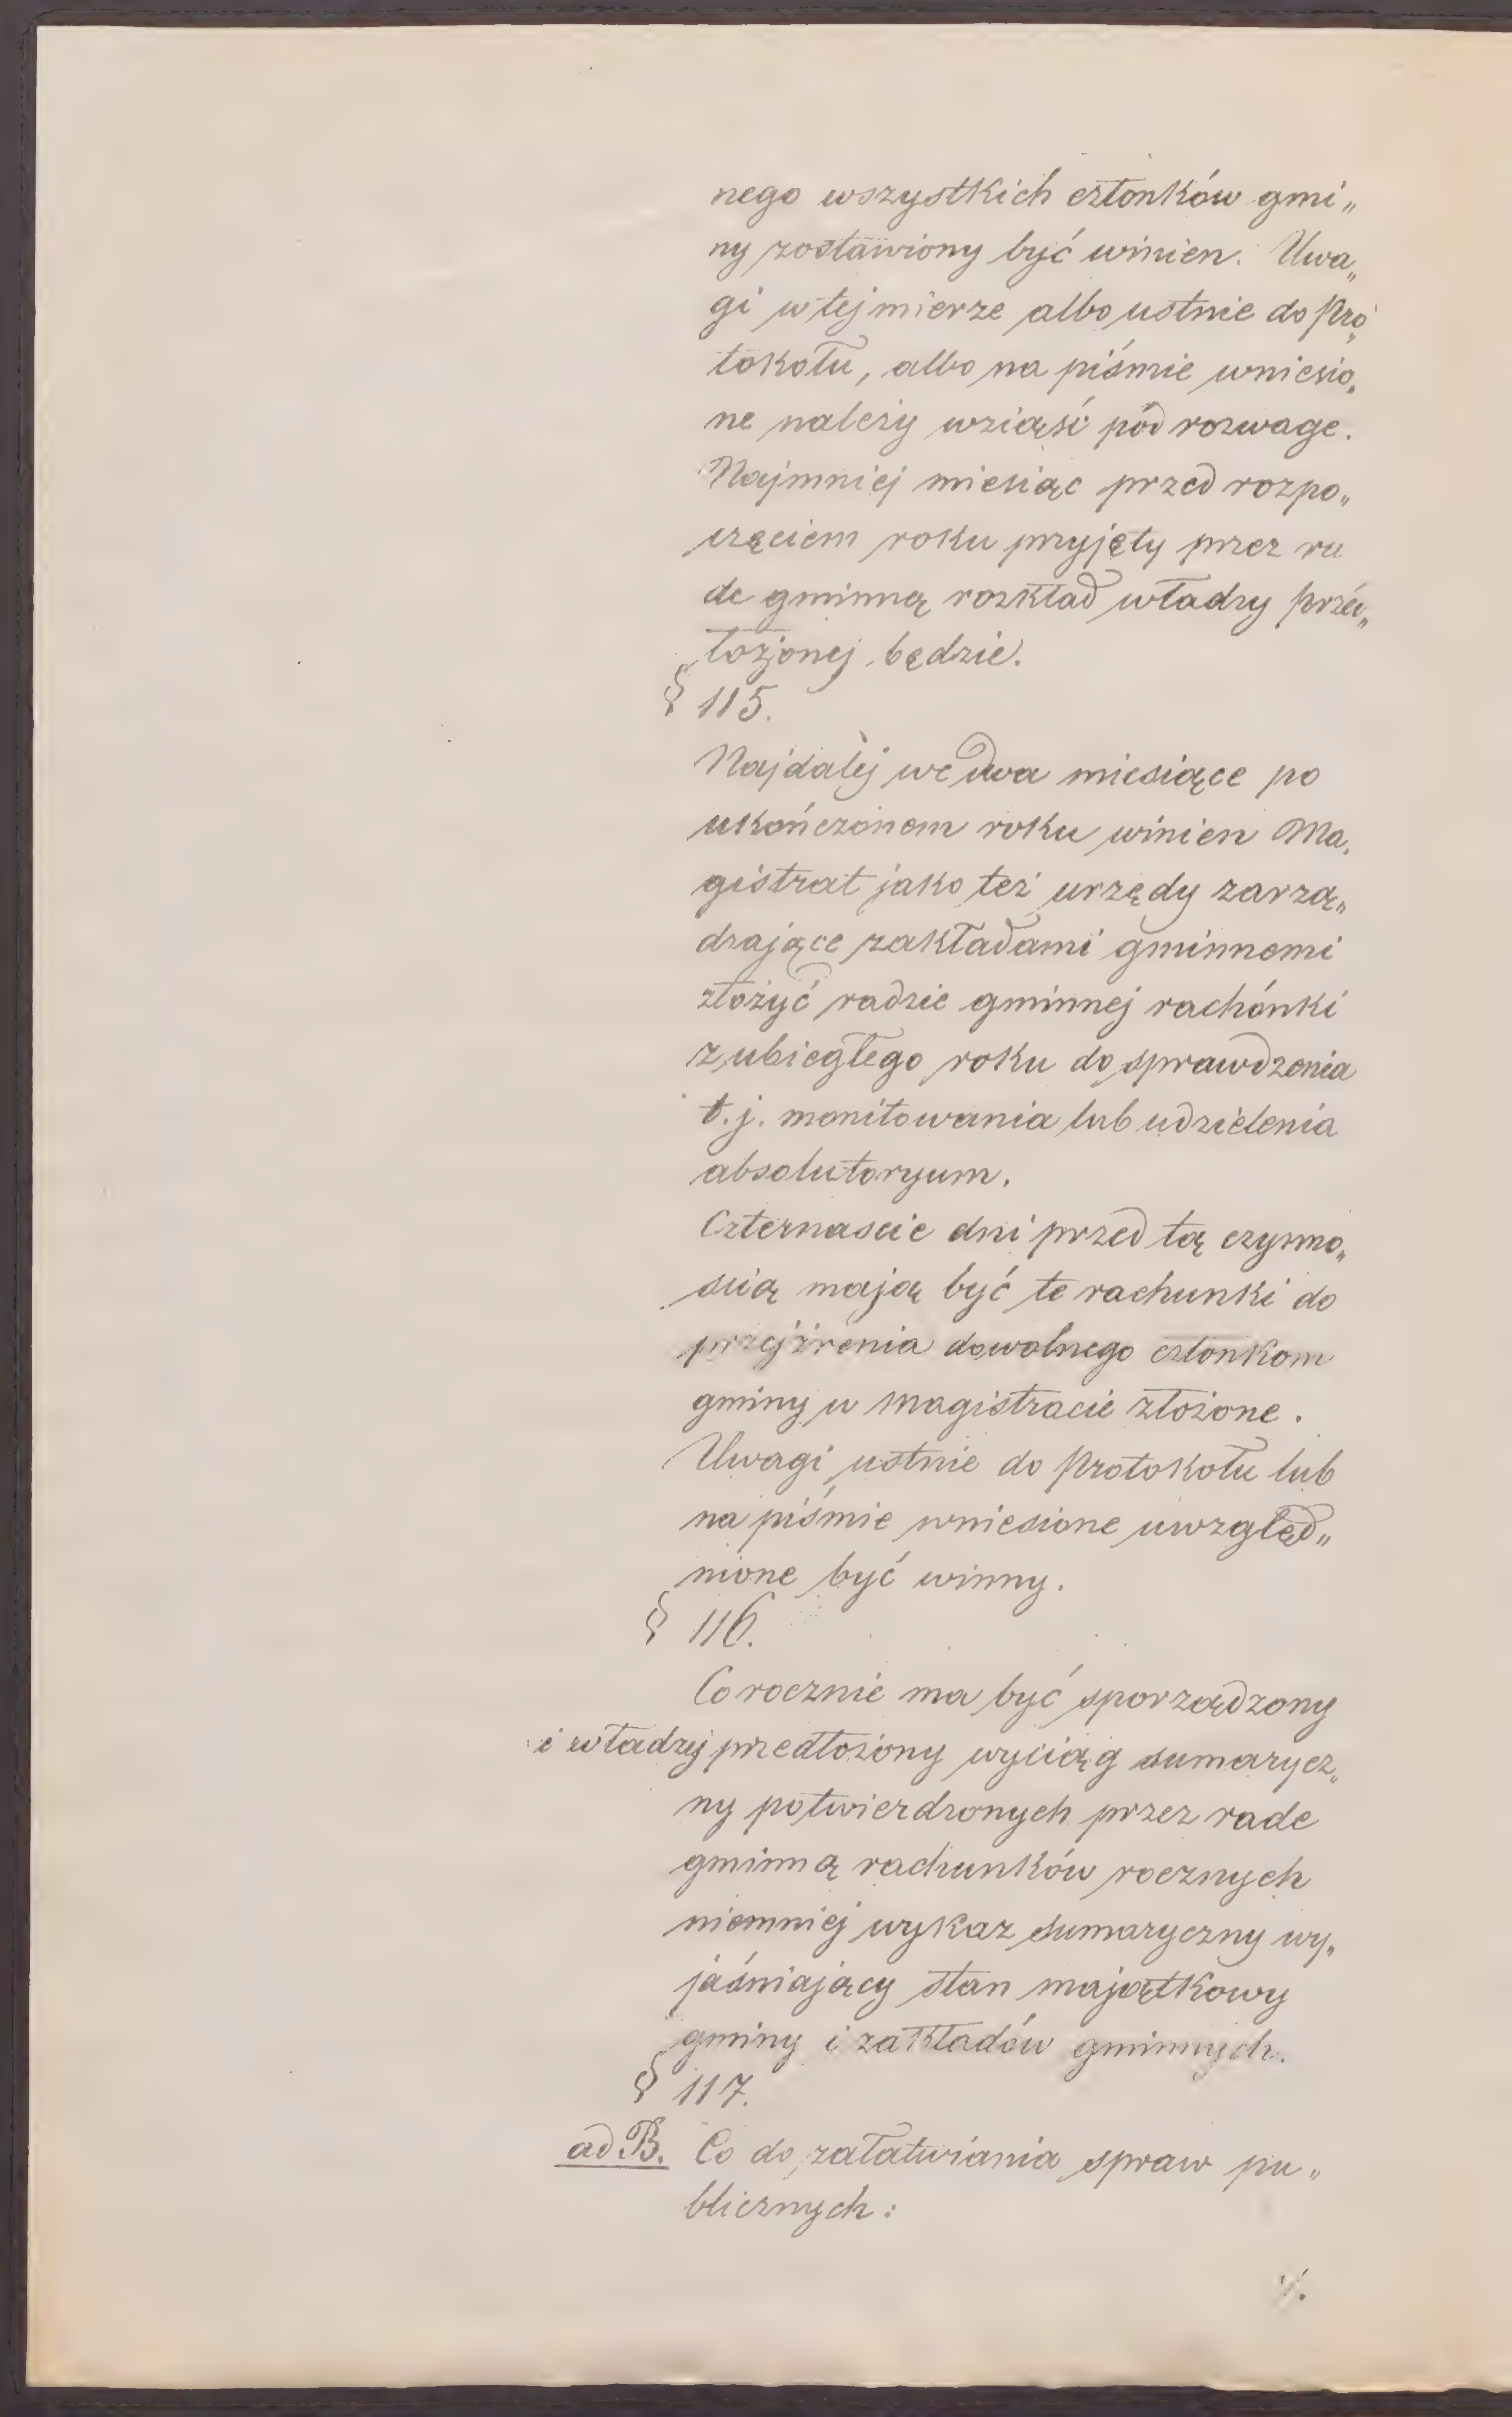 nego wszystkich członków gmi„
ny zostawiony być winien. Uwa„
gi w tej mierze albo ustnie do Pro„
tokołu, albo na piśmie wniesio„
ne należy wziąść pód rozwage.
Najmniej miesiąc przed rozpo„
częciem roku pryjęty przez ra
de gminną rozkład władzy przed„
łożonej będzie.
§ 115.
Najdalej we dwa miesiące po
ukończonem roku winien Ma„
gistrat jako też urzędy zarzą„
dzające zakładami gminnemi
złożyć radzie gminnej rachónki
z ubiegłego roku do sprawdzenia
t.j. monitowania lub udzielenia
absolutoryum.
Czternascie dni przed tą czynno„
scią mają być te rachunki do
przejźrenia dowolnego członkom
gminy w Magistracie złożone.
Uwagi ustnie do Protokołu lub
na piśmie wniesione uwzględ„
nione być winny.
§ 116.
Corocznie ma być sporządzony
i władzy predłożony wyciąg sumarycz„
ny potwierdzonych przez rade
gminną rachunków rocznych
niemniej wykaz sumaryczny wy„
jaśniający stan majątkowy
gminy i zakładów gminnych.
§ 117.
ad B. Co do załatwiania spraw pu„
blicznych:
./.